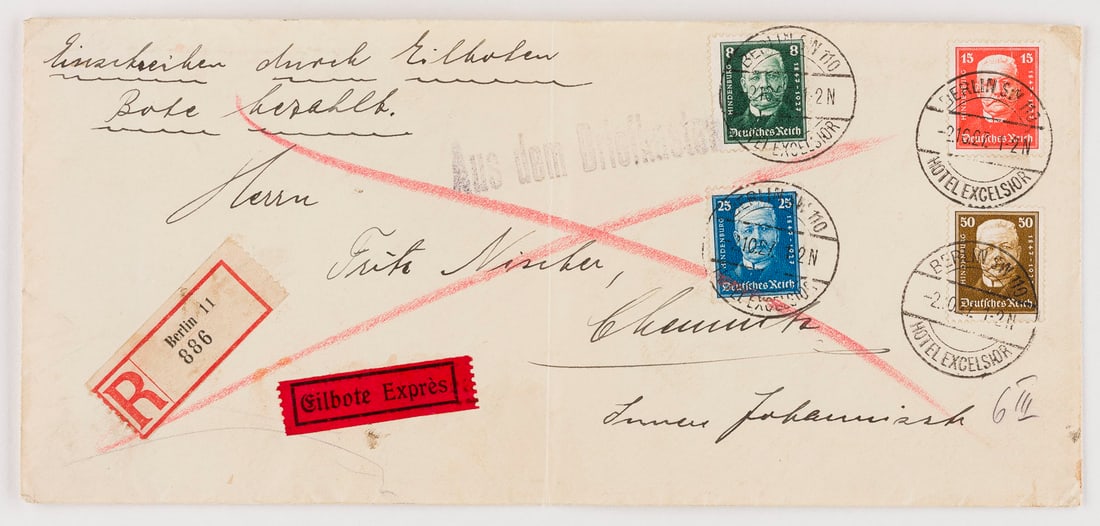 Einschreiben durch Eilboten
Bote bezahlt.
Aus dem Briefkasten
Herrn
Fritz Nischer,
Chemnitz
Innere Johannisstr
6 III
Berlin 11
886
R
Eilbote Exprès
8 8
HINDENBURG
1847-1927
Deutsches Reich
BERLIN SW 110
1-2N
HOTEL EXCELSIOR
15 15
1847-1927
Deutsches Reich
BERLIN SW 110
-2.10.27. 1-2N
HOTEL EXCELSIOR
25 25
HINDENBURG
1847-1927
Deutsches Reich
BERLIN SW 110
HOTEL EXCELSIOR
50 50
1847-1927
Deutsches Reich
BERLIN SW 110
1-2N
HOTEL EXCELSIOR